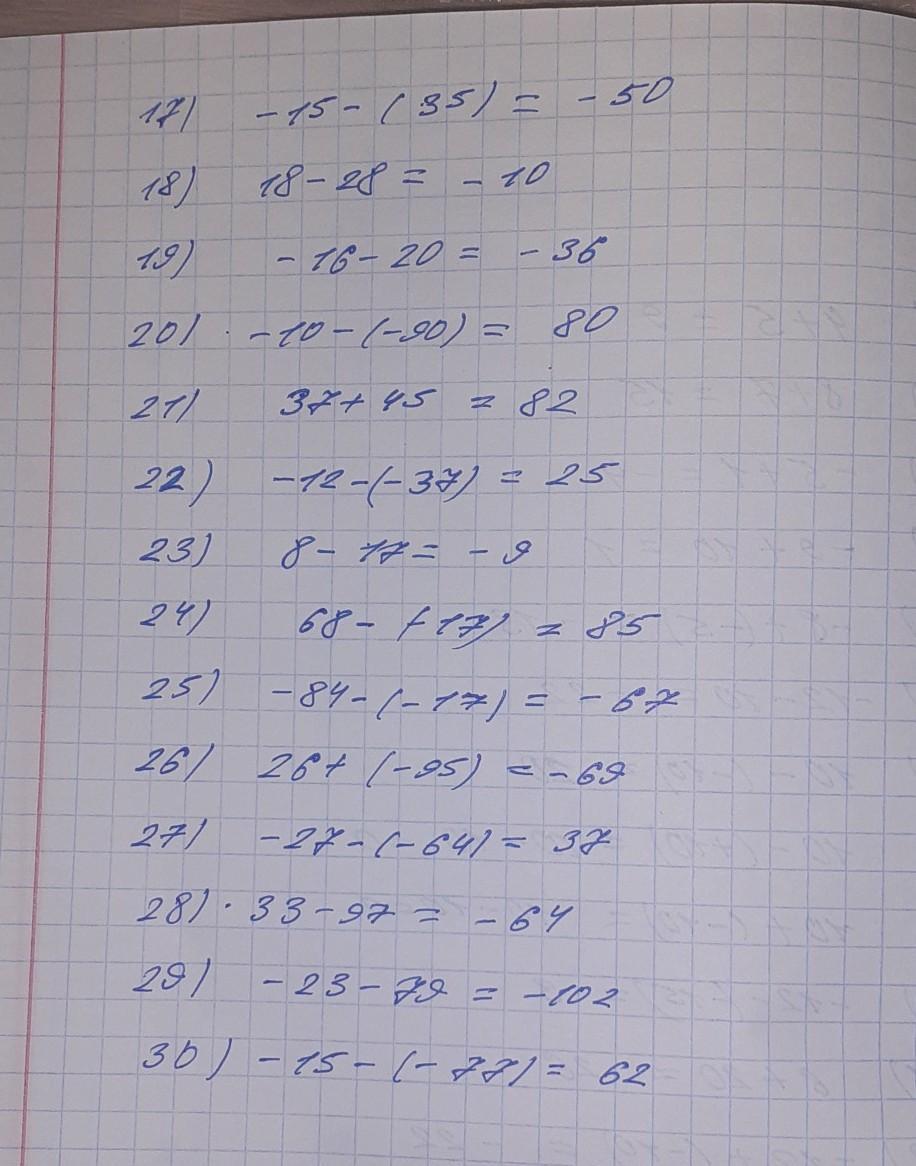 17) -15-(35) = -50
18) 18-28 = -10
19) -16-20 = -36
20) -10-(-90) = 80
21) 37+45 = 82
22) -12-(-37) = 25
23) 8-17= -9
24) 68-(-17) = 85
25) -84-(-17) = -67
26) 26+(-95) = -69
27) -27-(-64) = 37
28) 33-97 = -64
29) -23-79 = -102
30) -15-(-77) = 62